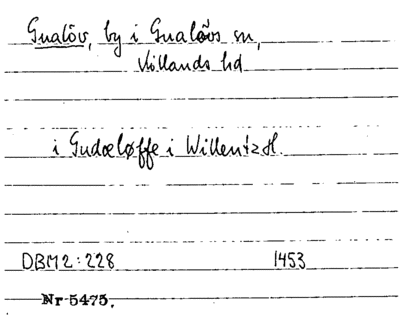 Gualöv, by i Gualövs sn,
Villands hd
i Gudæløffe i Willentz H.
DBM 2:228 1453
Nr 5475.